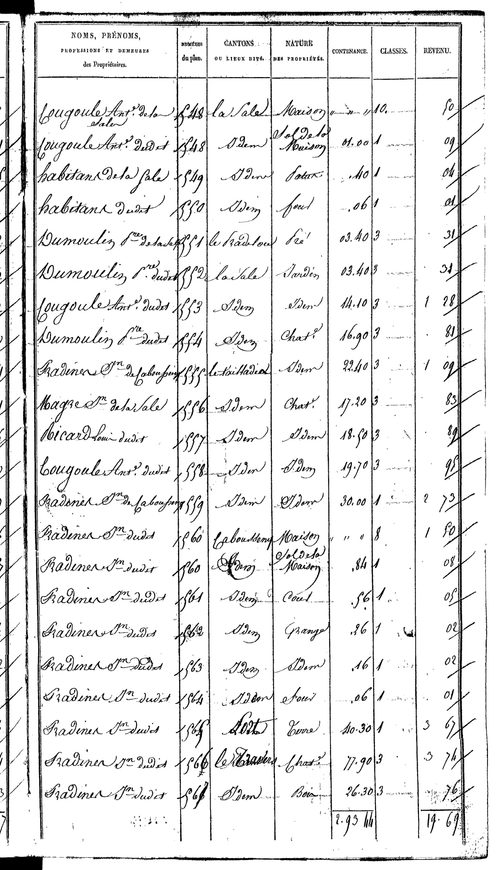 NOMS, PRÉNOMS, PROFESSIONS ET DEMEURES des Propriétaires. NUMÉROS du plan. CANTONS OU LIEUX DITS. NATURE DES PROPRIÉTÉS. CONTENANCE. CLASSES. REVENU.
Cougoule Ant.e de la Sale 1548 la Sale Maison " " " 10. 50
Cougoule Ant.e dudit 1548 Idem Sol de la Maison 01.00 1 09
habitans de la Sale 1549 Idem .40 1 04
habitans dudit 1550 Idem four .06 1 01
Dumoulin P.re de la Sale 1551 Pré 03.40 3 31
Dumoulin P.re dudit 1552 la Sale Jardin 03.40 3 31
Cougoule Ant.e dudit 1553 Idem Idem 14.10 3 1 28
Dumoulin P.re dudit 1554 Idem Chat.e 16.90 3 81
Radines J.n de Caboussens 1555 Idem 22.40 3 1 09
Magre J.n de la Sale 1556 Idem Chat.e 17.20 3 83
Ricard Louis dudit 1557 Idem Idem 18.50 3 89
Cougoule Ant.e dudit 1558 Idem Idem 19.70 3 95
Radines J.n de Caboussens 1559 Idem Idem 30.00 1 2 73
Radines J.n dudit 1560 Caboussens Maison " " " 8 1 50
Radines J.n dudit 1560 Idem Sol de la Maison .84 1 08
Radines J.n dudit 1561 Idem Cour .56 1 05
Radines J.n dudit 1562 Idem Grange .26 1 02
Radines J.n dudit 1563 Idem Idem .16 1 02
Radines J.n dudit 1564 Idem four .06 1 01
Radines J.n dudit 1565 Terre 40.30 1 3 67
Radines J.n dudit 1566 le Travers Chat.e 77.90 3 3 74
Radines J.n dudit Idem Bois 26.30 3 76
2.93 44 19.69